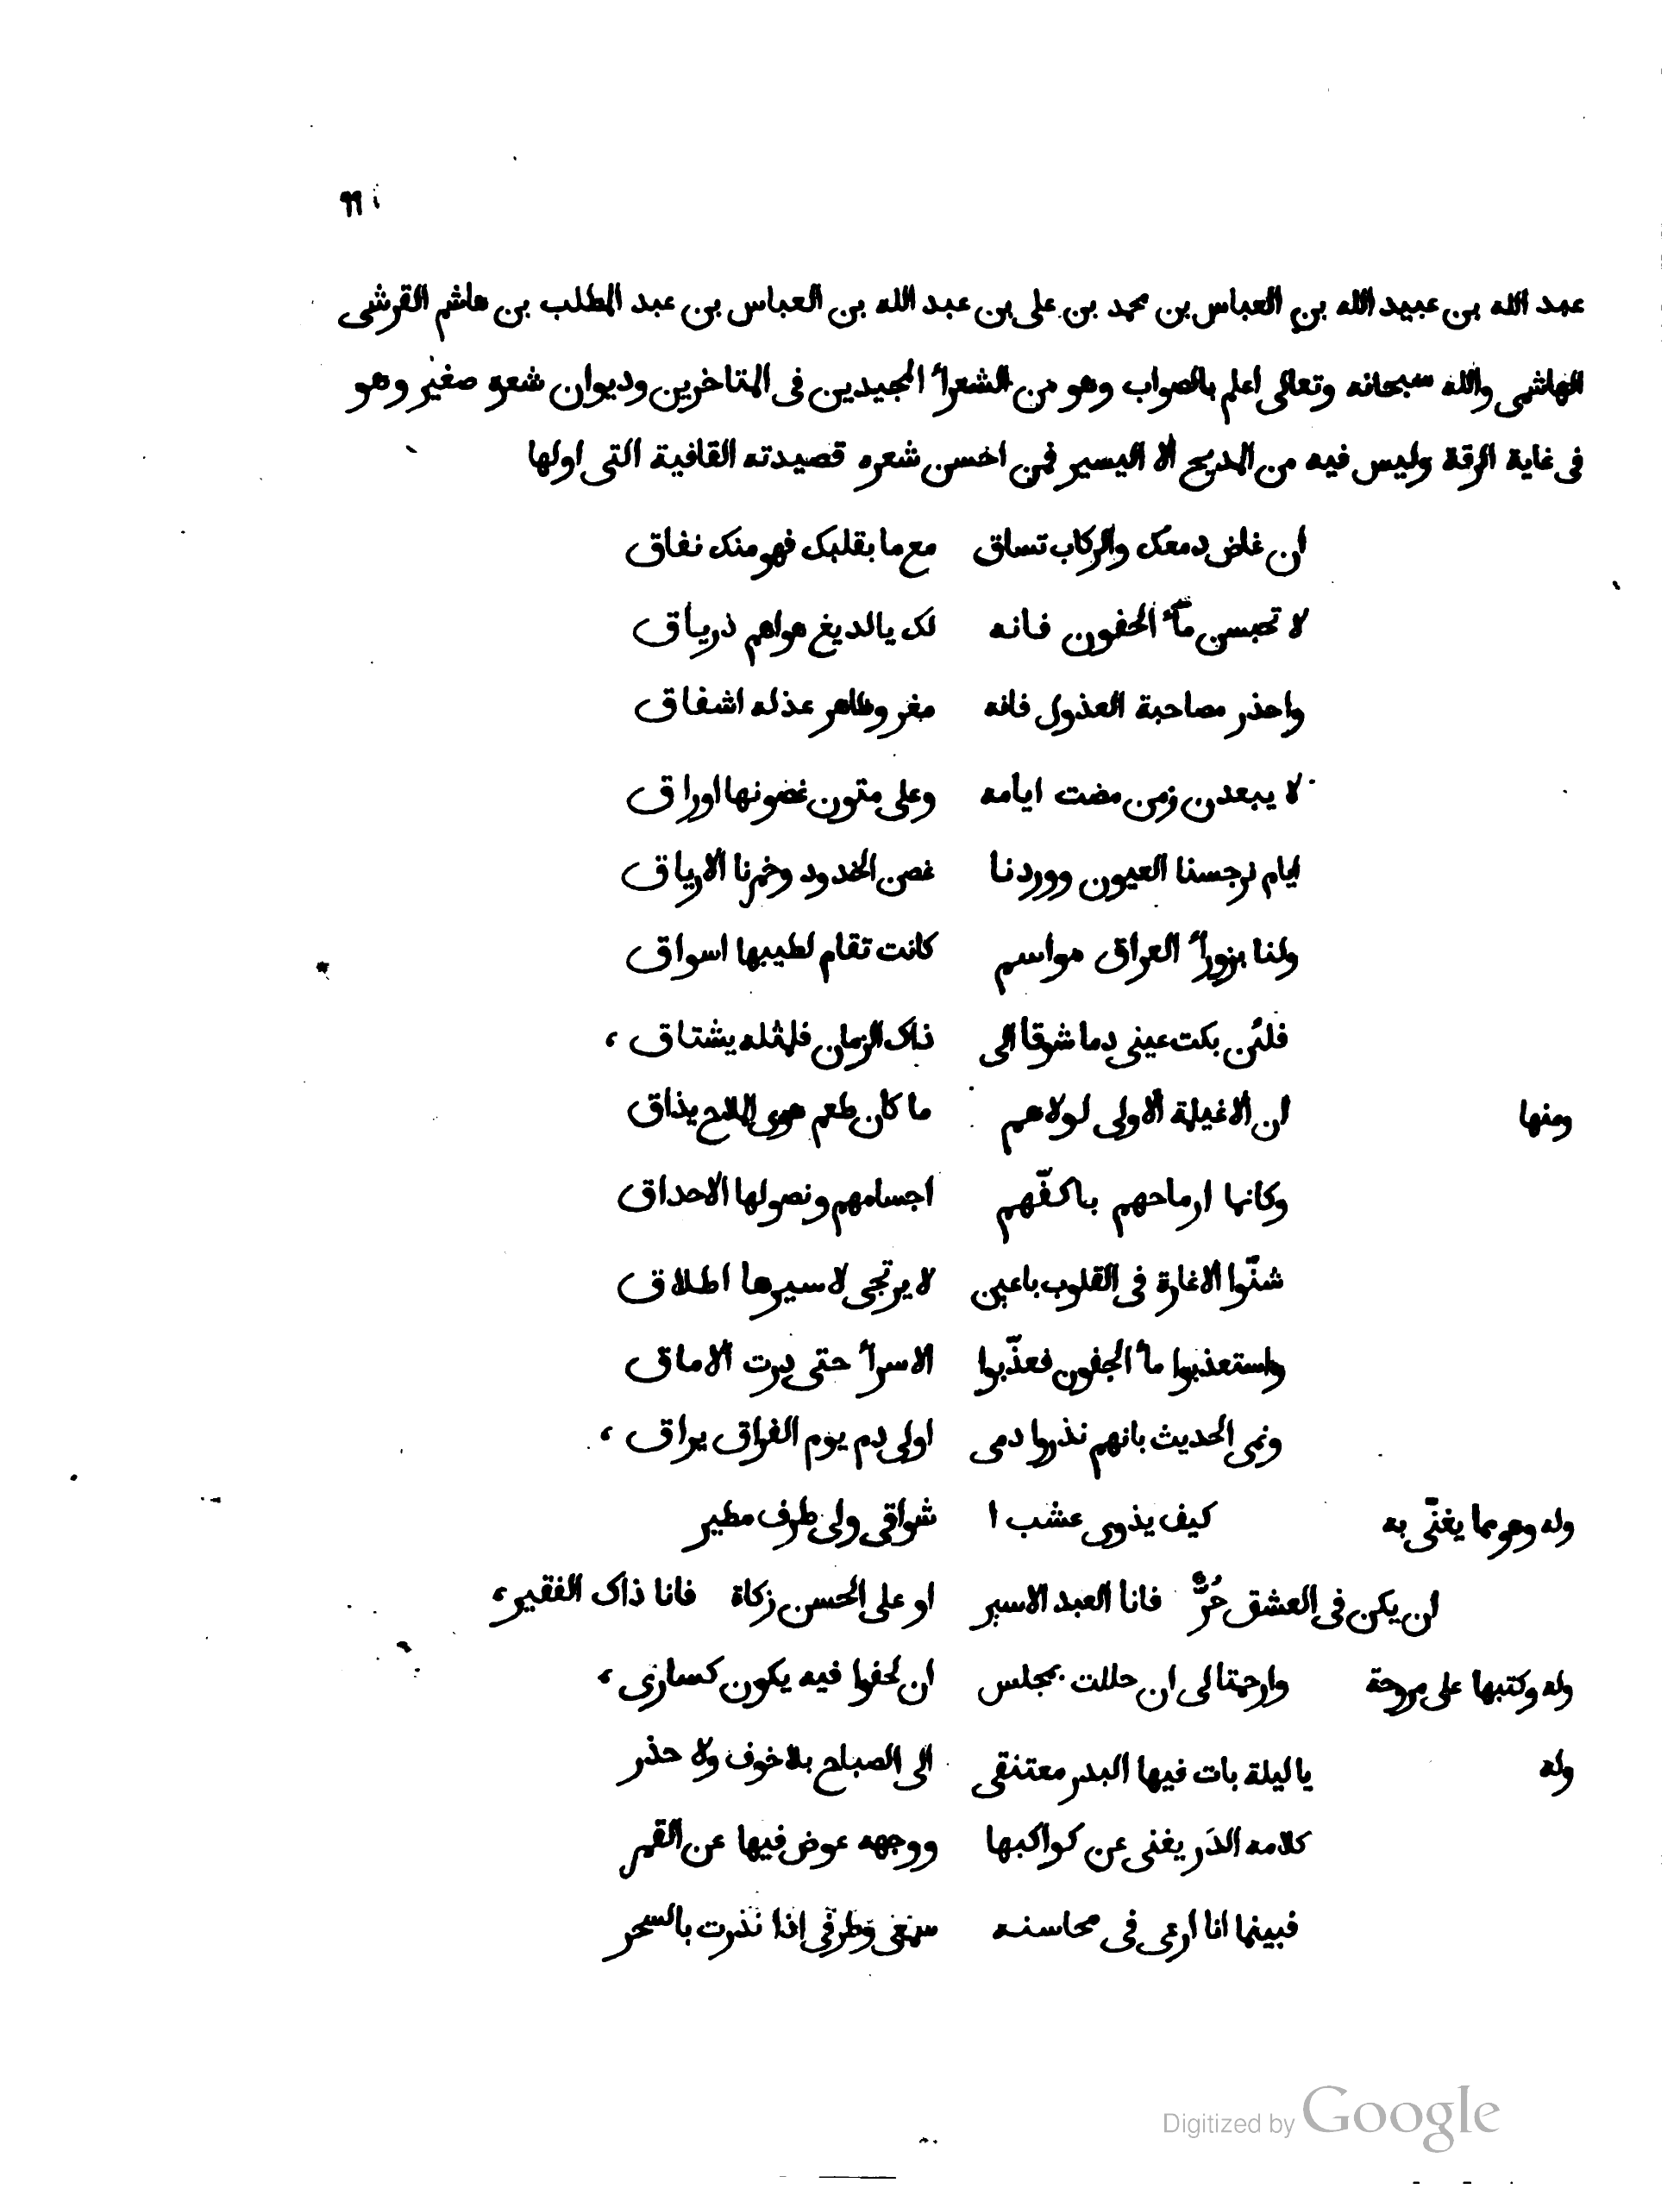 ٩٩
عبد الله بن عبيد الله بن العباس بن محمد بن على بن عبد الله بن العباس بن عبد المطلب بن هاشم القرشى
الهاشمى والله سبحانه وتعالى اعلم بالصواب وهو من الشعرأ المجيدين فى المتاخرين وديوان شعره صغير وهو
فى غاية الرقة وليس فيه من المديح الا اليسير فمن احسن شعره قصيدته القافية التى اولها
ان غاض دمعك والركاب تساق مع ما بقلبك فهو منك نفاق
لا تحبسن مأ الجفون فانه لك يا لديغ هواهم درياق
واحذر مصاحبة العذول فانه مغر وظاهر عذله اشفاق
لا يبعدن زمن مضت ايامه وعلى متون غصونها اوراق
ايام نرجسنا العيون ووردنا غصن الخدود وخمرنا الارياق
ولنا بزورأ العراق مواسم كانت تقام لطيبها اسواق
فلئن بكت عينى دما شوقا الى ذاك الزمان فلمثله يشتاق ،
ومنها ان الاغيلمة الاولى لولاهم ما كان طعم هوى الملاح يذاق
وكانما ارماحهم باكفّهم اجسامهم ونصولها الاحداق
شنّوا الاغارة فى القلوب باعين لا يرتجى لاسيرها اطلاق
واستعذبوا مأ الجفون فعذّبوا الاسرأ حتى درت الاماق
ونمى الحديث بانهم نذروا دمى اولى دم يوم الفراق يراق ،
وله وهو مما يغنّى به كيف يذوى عشب ا شواقى ولى طرف مطير
ان يكن فى العشق حُرٌّ فانا العبد الاسير او على الحسن زكاة فانا ذاك الفقير ،
وله وكتبها على مروحة وارحمتا لى ان حللت بمجلس ان لحفوا فيه يكون كسارى ،
وله يا ليلة بات فيها البدر معتنقى الى الصباح بلا خوف ولا حذر
كلامه الدر يغنى عن كواكبها ووجهه عوض فيها عن القمر
فبينما انا ارعى فى محاسنه سمعى وطرفى اذا نذرت بالسحر
Digitized by Google